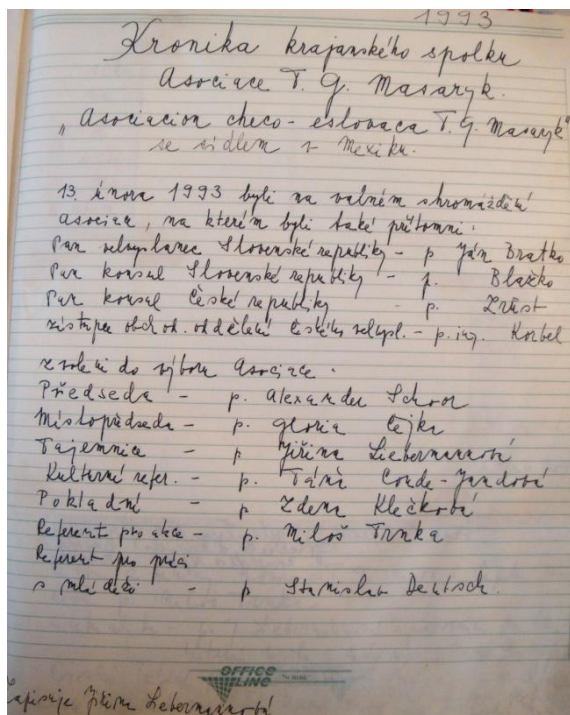 1993
Kronika krajanského spolku
Asociace T. G. Masaryk.
„Asociacion checo-eslovaca T. G. Masaryk"
se sídlem v Mexiku.
13. února 1993 byli na valném shromáždění
asociace, na kterém byli také přítomni:
Pan velvyslanec Slovenské republiky - p Ján Bratko
Pan konsul Slovenské republiky - p. Blažko
Pan konsul České republiky - p. Zrůst
zástupce obchod. oddělení českého velvysl. - p. ing. Korbel
zvoleni do výboru Asociace.
Předseda - p. Alexander Schorr
Místopředseda - p. Gloria Čejka
Tajemnice - p Jiřina Liebermannová
Kulturní refer. - p. Táňa Conde-Jandová
Pokladní - p Zdena Klečková
Referent pro akce - p. Miloš Trnka
Referent pro práci
s mládeží - p Stanislav Deutsch.
OFFICE
LINE
Zapisuje Jiřina Liebermannová